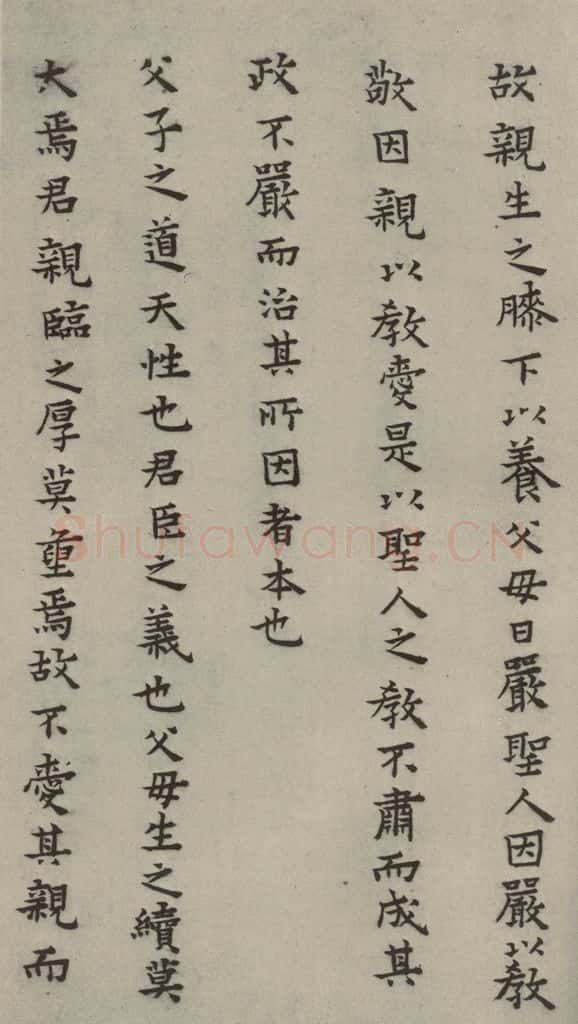 故親生之膝下以養父母日嚴聖人因嚴以教
敬因親以教愛是以聖人之教不肅而成其
政不嚴而治其所因者本也
父子之道天性也君臣之義也父母生之續莫
大焉君親臨之厚莫重焉故不愛其親而
Shufawang.CN